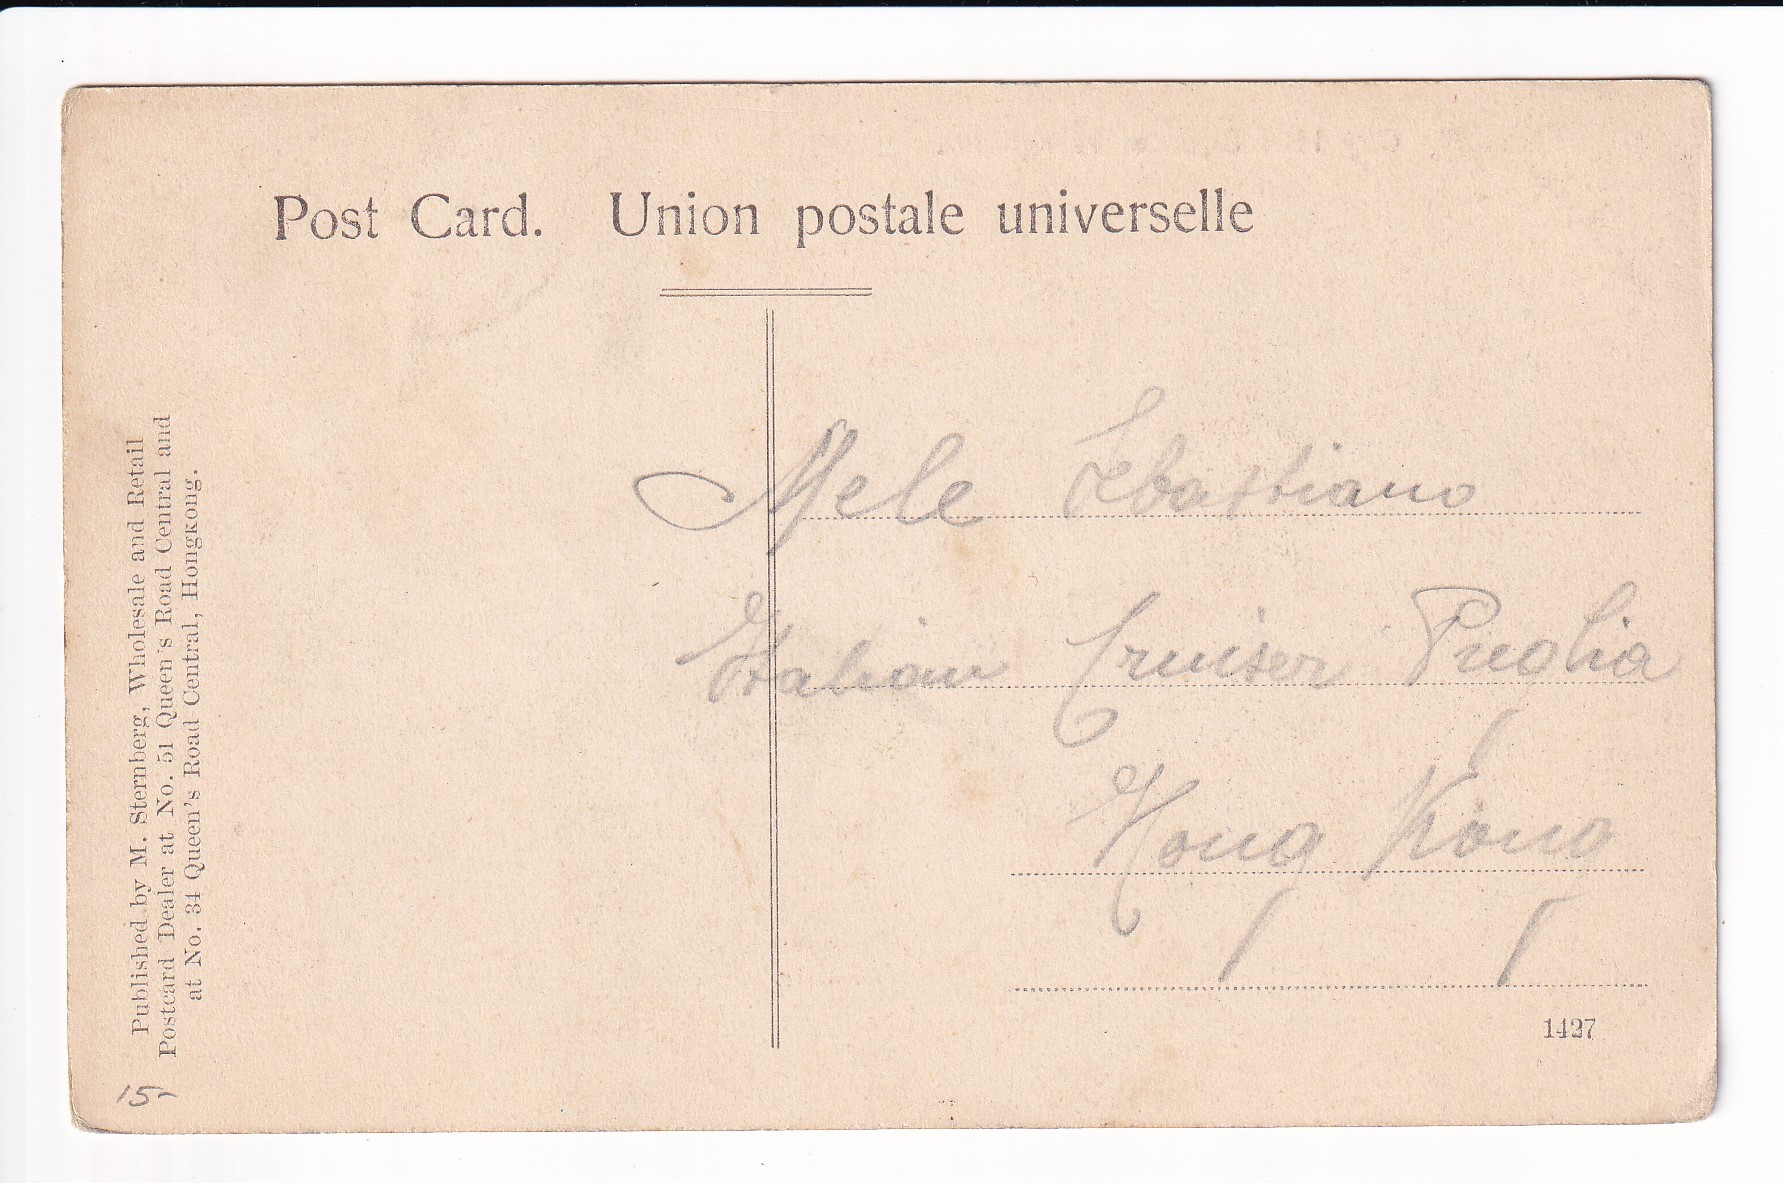 Post Card. Union postale universelle
Mele Sebastiano
Italian Cruiser Puglia
Hong Kong
1427
Published by M. Sternberg, Wholesale and Retail
Postcard Dealer at No. 51 Queen's Road Central and
at No. 34 Queen's Road Central, Hongkong.
15-